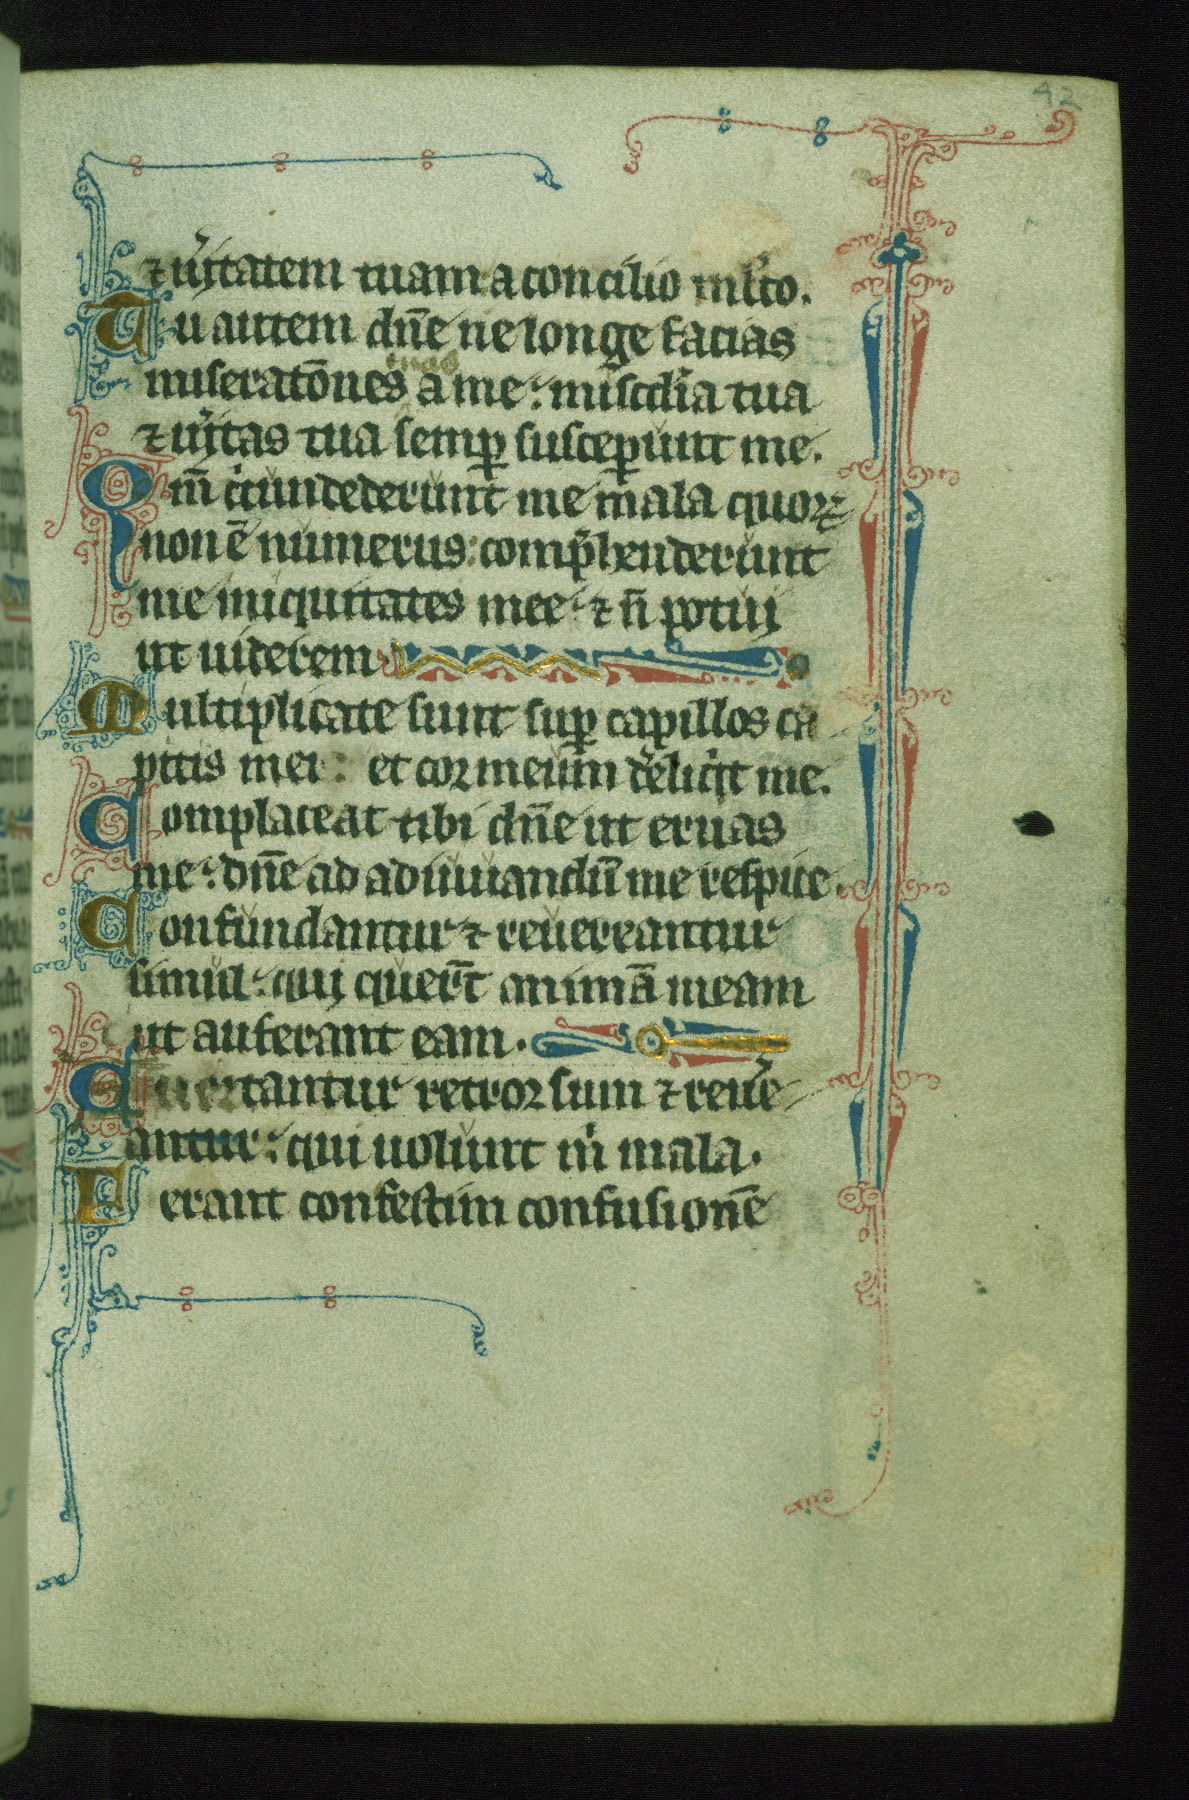 42
⁊ ũitatem tuam a concilio mĺto.
Tu autem dñe ne longe facias
tuas
miseratõnes a me: misc̃dia tua
⁊ ũitas tua semꝑ susceꝑunt me.
Qm̃ ci̾cundederunt me mala quoꝝ
non ẽ numerus: comp̃henderunt
me iniquitates mee: ⁊ ñ potuj
ut uiderem.
Multiplicate sunt suꝑ capillos ca
pitis mei: et cor meum dẽliq̾t me.
Complaceat tibi dñe ut eruas
me: dñe ad adiuuandũ me respice.
Confundantur ⁊ reuereantur
simul: qui querũt animã meam
ut auferant eam.
Cuertantur retrorsum ⁊ reuẽ
antur: qui uolunt m̾ mala.
Ferant confestim confusionẽ